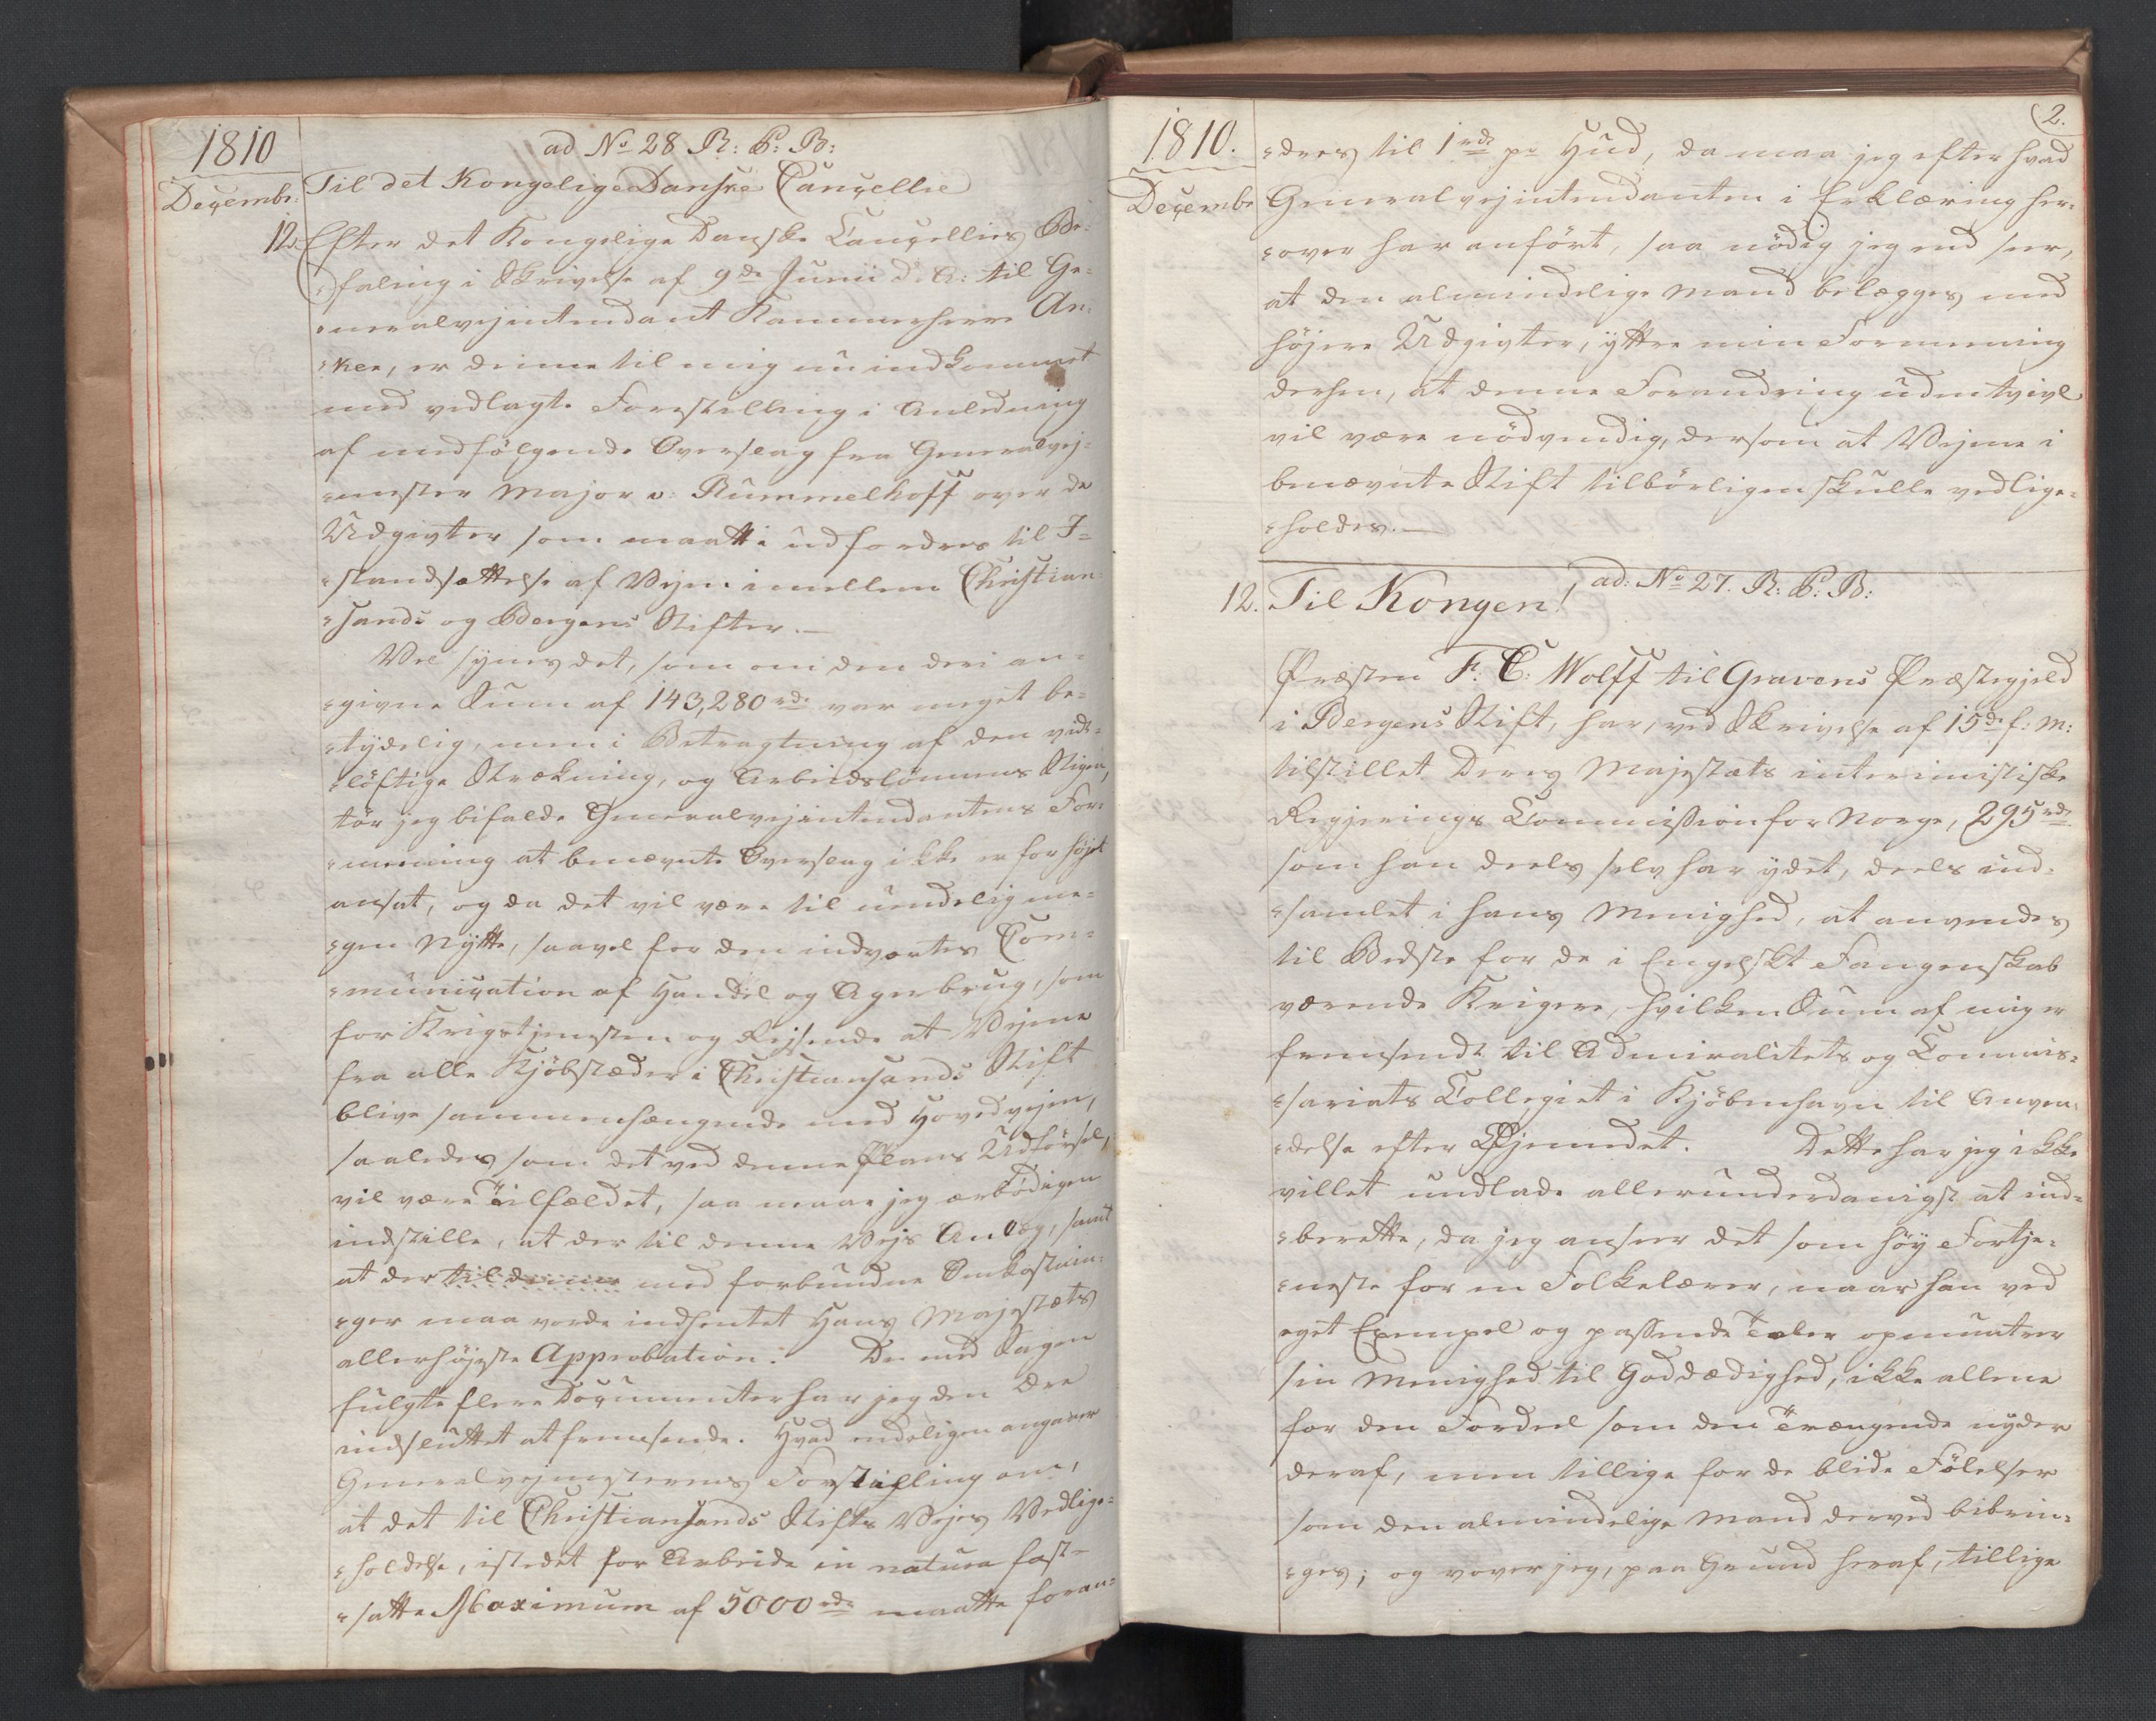 1810
ad No 28 R: C: B:
Decembr:
Til det Kongelige Danske Cancellie
12. Efter det Kongelige Danske Cancellies Be-
-faling i Skrivelse af 9de Junii d. A: til Ge-
-neralvejintendant Kammerherre An-
-ker, er denne til mig nu indkommet
med vedlagte Forestilling i Anledning
af medfølgende Overslag fra Generalvej-
-mester Major v: Rummelhoff over de
Udgivter som maatte udfordres til I-
-standsættelse af Vejene imellem Christian-
-sands og Bergens Stifter.—
Vel synes det, som om den deri an-
-givne Sum af 143,280 rd. var meget be-
-tydelig, men i Betragtning af den vidt-
-løftige Strækning, og Arbeidslønnens Stigen,
tør jeg bifalde Generalvejintendantens For-
-meening at benævnte Overslag ikke er for højt
ansat, og da det vil være til uendelig me-
-gen Nytte, saavel for den indvortes Com-
-munication af Handel og Agerbrug, som
for Krigstjenesten og Rejsende at Vejene
fra alle Kjøbstæder i Christiansands Stift
blive sammenhængende med Hovedvejen,
saaledes som det ved denne Plans Udførsel,
vil være Tilfældet, saa maae jeg ærbødigen
indstille, at der til denne Vejs Anlæg, samt
at der til denne med forbundne Omkostnin-
-ger maa vorde indhentet Hans Majestæts
allerhøjeste Approbation. De med Sagen
fulgte flere Documenter har jeg den Ære
indsluttet at fremsende. Hvad endeligen angaaer
Generalvejmesterens Forestilling om,
at det til Christiansands Stifts Vejes Vedlige-
-holdelse, istedet for Arbeide in natura fast-
-satte Maximum af 5000 rd. maatte foran-
2.
1810.
Decembr
-dres til 1 rd. pr Hud, da maa jeg efter hvad
Generalvejintendanten i Erklæring her-
-over har anført, saa nødig jeg end seer,
at den almindelige Mand belægges med
højere Udgivter, yttre min Formeening
derhen, at denne Forandring uden tvivl
vil være nødvendig, dersom at Vejene i
benævnte Stift tilbørligen skulle vedlige-
-holdes.—
ad: No 27. R: C: B:
12. Til Kongen!
Præsten F. C. Wolff til Gravens Præstegjeld
i Bergens Stift, har, ved Skrivelse af 15de f: M:
tilstillet Deres Majestæts interimistiske
Regjerings Commission for Norge, 295 rd.
som han deels selv har ydet, deels ind-
-samlet i hans Menighed, at anvendes
til Bedste for de i Engelskt Fangenskab
værende Krigere, hvilken Sum af mig er
fremsendt til Admiralitets og Commis-
-sariats Collegiet i Kjøbenhavn til Anven-
-delse efter Øjemedet. Dette har jeg ikke
villet undlade allerunderdanigst at ind-
-berette, da jeg anseer det som høj Fortje-
-neste for en Folkelærer, naar han ved
eget Exempel og passende Taler opmuntrer
sin Menighed til Goddædighed, ikke allene
for den Fordeel som den Trængende nyder
deraf, men tillige for de blide Følelser
som den almindelige Mand derved bibrin-
-ges; og vover jeg, paa Grund heraf, tillige